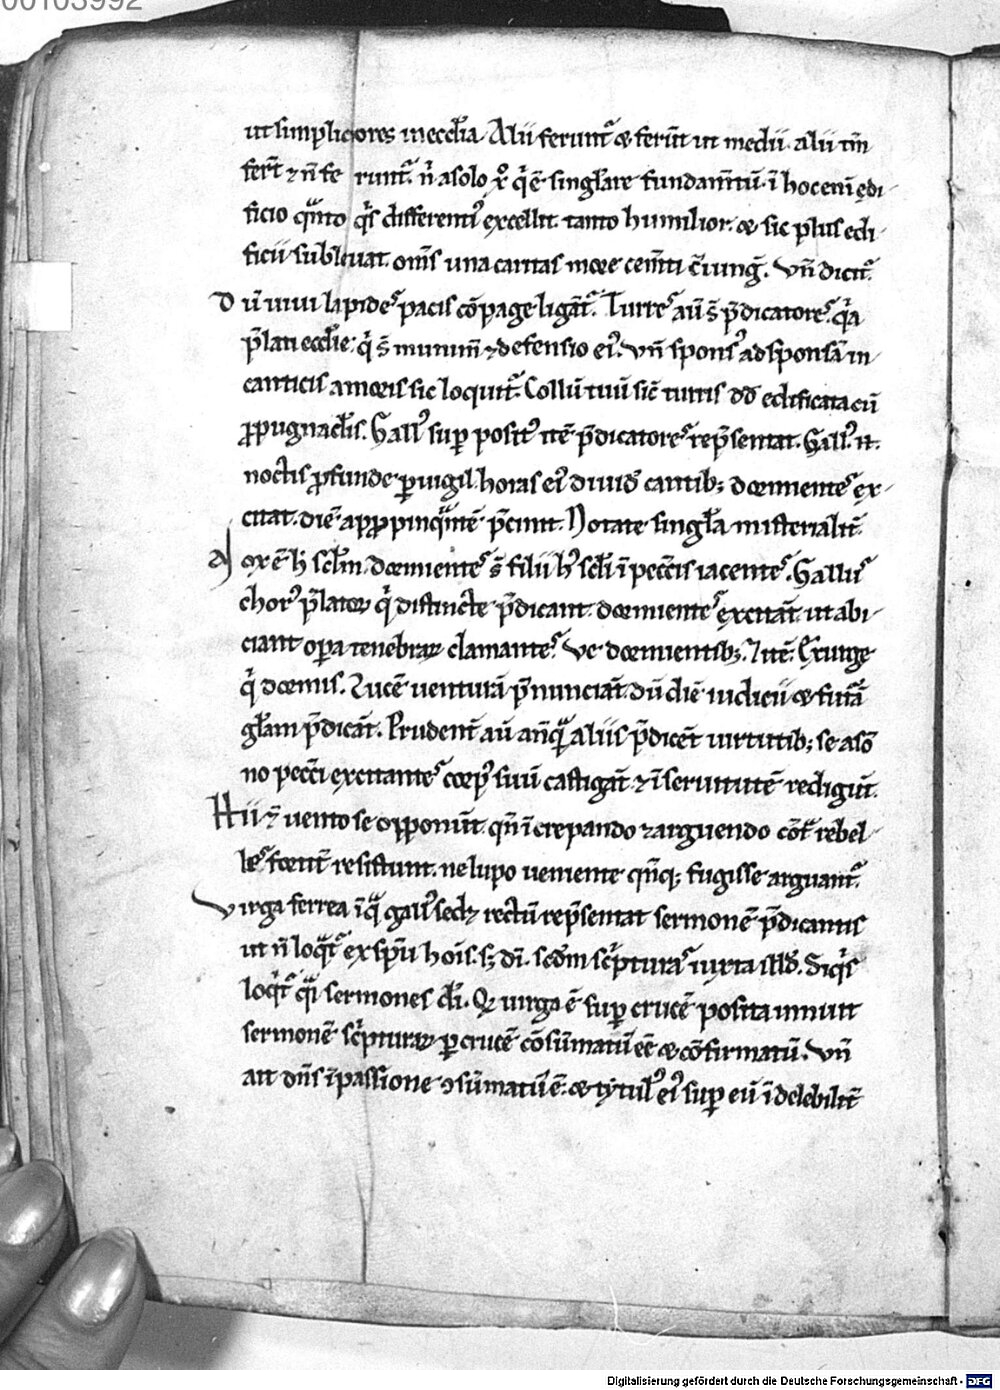 00103992
ut simpliciores in ecclia. Alii ferunt᷑ & ferūt ut medii. alii tm̄
fer̄t ⁊ n̄ fe runt᷑. n̄ a solo xp̄o q̄ ē singlare fundam̄tū. ī hoc enī ędi
ficio q̄nto q̄s differentiꝰ excellit. tanto humilior. & sic plus edi
ficii subleuat. om̄s una caritas more cem̄ti c̄iunḡ. Vn̄ dicit᷑.
Dū uiui lapides pacis cōpage ligāt᷑. Turres aū s̄ p̄dicatores. q̄a
p̄lati ecclie. q̄ s̄ munim̄ ⁊ defensio eiꝰ. Vn̄ sponsꝰ ad sponsā in
canticis amoris sic loquit᷑. Collū tuū sic̄ turris dd̄ edificata cū
ꝓpugnaclis. Gallꝰ suꝑ positꝰ itē p̄dicatores rep̄sentat. Gallꝰ n.
noctis ꝓfunde ꝑuigil horas eiꝰ diuid̄ cantibꝫ dormientes ex
citat. diē appropinq̄ntē p̄cinit. Notate singla misterialit̄.
Nox ē h̄ sclm̄. dormientes s̄ filii hꝰ scli ī peccis iacentes. Gallus
chorꝰ p̄latoꝝ q̄ distincte p̄dicant. dormientes excitāt. ut abi
ciant oꝑa tenebraꝝ clamantes. Ve dormientibꝫ. Itē. Exurge
q̄ dormis. Lucē uenturā p̄nunciāt. dū diē iudicii & futā
glam p̄dicāt. Prudent̄ aū anq̄ aliis p̄dicēt uirtutibꝫ se a som̄
no pecci excitantes corpꝰ suū castigāt ⁊ ī seruitutē redigūt.
Hii ⁊ uento se opponūt. qn̄ īcrepando ⁊ arguendo cōt̄ rebel
les fortit̄ resistunt. ne lupo ueniente qn̄qꝫ fugisse arguant᷑.
Virga ferrea ī q̄ gallꝰ sedꝫ rectū rep̄sentat sermonē p̄dicantis
ut n̄ loq̄t᷑ ex sp̄u hois. sꝫ di. scdm sc̄pturas iuxta illd̄. Siq̄s
loq̄t᷑ q̄si sermones di. Qꝫ uirga ē suꝑ crucē posita innuit
sermonē sc̄pturaꝝ ꝑ crucē cōsūmatū eē & cōfirmatū. Vn̄
ait dn̄s ī passione ꝯsūmatū ē. & tytulꝰ eiꝰ suꝑ eū īdelebilit̄
Digitalisierung gefördert durch die Deutsche Forschungsgemeinschaft - DFG